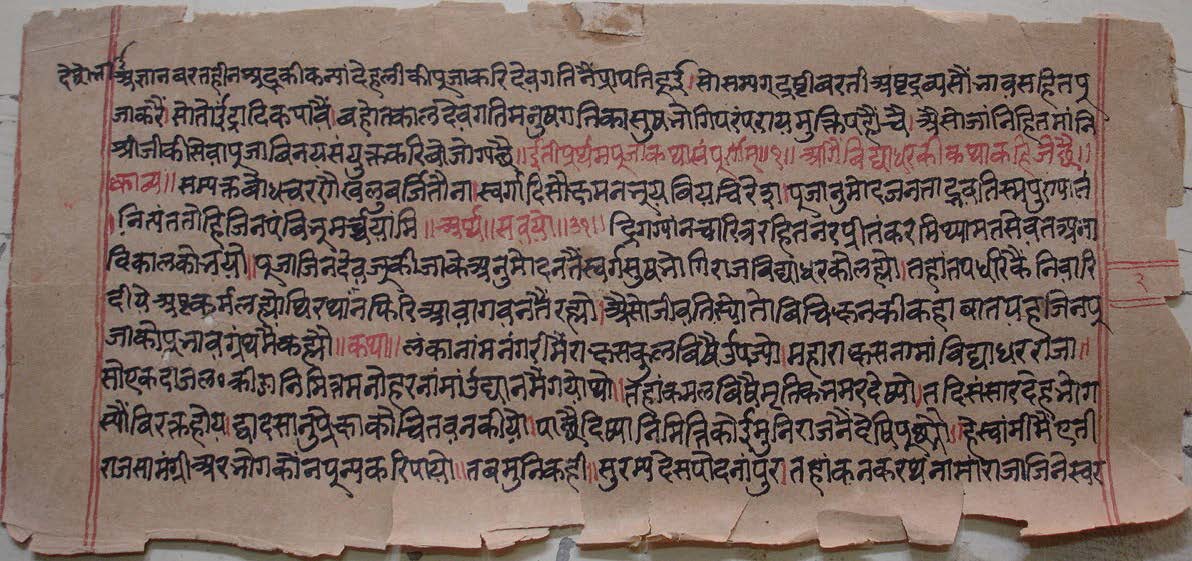 देषोला अज्ञान वरतहीन अद्रकी कन्यां देहलीकी पूजा करि देवगतिनैं प्रापति हूई। सो सम्यगदृष्टी वरती अष्टद्रव्यसौं भावसहित पु
जा करै। सो तो इंद्रादिक पावैं। बहोत काल देवगति मनुषगतिका सुष भोगि परंपराय मुक्ति पहौंचै। अैसो जांनि हित मांनि
श्रीजीकी सेवा पूजा विनय संयुक्त करिवो जोग्य छै॥ इती प्रथम पूजा कथा संपूर्णम्॥१॥ अगैं विद्याधरकी कथा कहिजे छै॥
काव्य॥ सम्यक्त बोध चरणौ खलु वर्जितौ ना। स्वर्गादि सौख्यमनभूय विय चिरेण। पूजानुमोदजनना द्भवति स्म
नित्यं ततो हि जिनपं विभुमर्च्चयांमि॥ अर्थ॥ सवय्यो॥३१॥ द्रिग ग्यांन चारित्र रहित नर प्रीतंकर मिथ्यामत सेवत अना
दि कालको भयो॥ पूजा जिनदेवजूकी जाके अनुमोदनतैं स्वर्गसुष भोगि राजविद्याधरको लह्यो॥ तहां तप धरिकैं निवारि
दीये अष्टकर्म लह्यो थिर थांन फिरि आवागवनतैं रह्यो॥ अैसो जीव तिस्यो तो विचिछनकी कहा बात यह जिनपु
जाको प्रभाव ग्रंथमैं कह्यौ॥ कथा॥ लंका नांम नंगरीमैं राक्षस कुल विषै उपज्यो। महाराक्षस नामां विद्याधर राजा॥
सो एक दा जल॰ क्रीडा निमित्त मनोहर नांमां उद्यानमैं गयो थो॥ तहां कमल विषै मृतिक भमर देष्यो॥ तदि संसार देह भोग
स्यौं विरक्त होय। द्वादसानुप्रेक्षाको चितवन कीयो॥ पाछै दिष्या निमित्ति कोई मुंनिराजनैं देषि पूछ्यो। हे स्वांमी मैं एती
राज सामंग्री अर भोग कौंन पून्य करि पायो॥ तब मुनि कही॥ सुरम्य देस पोदनांपुर। तहां कनकरथ नांमा राजा जिनेस्वर
२